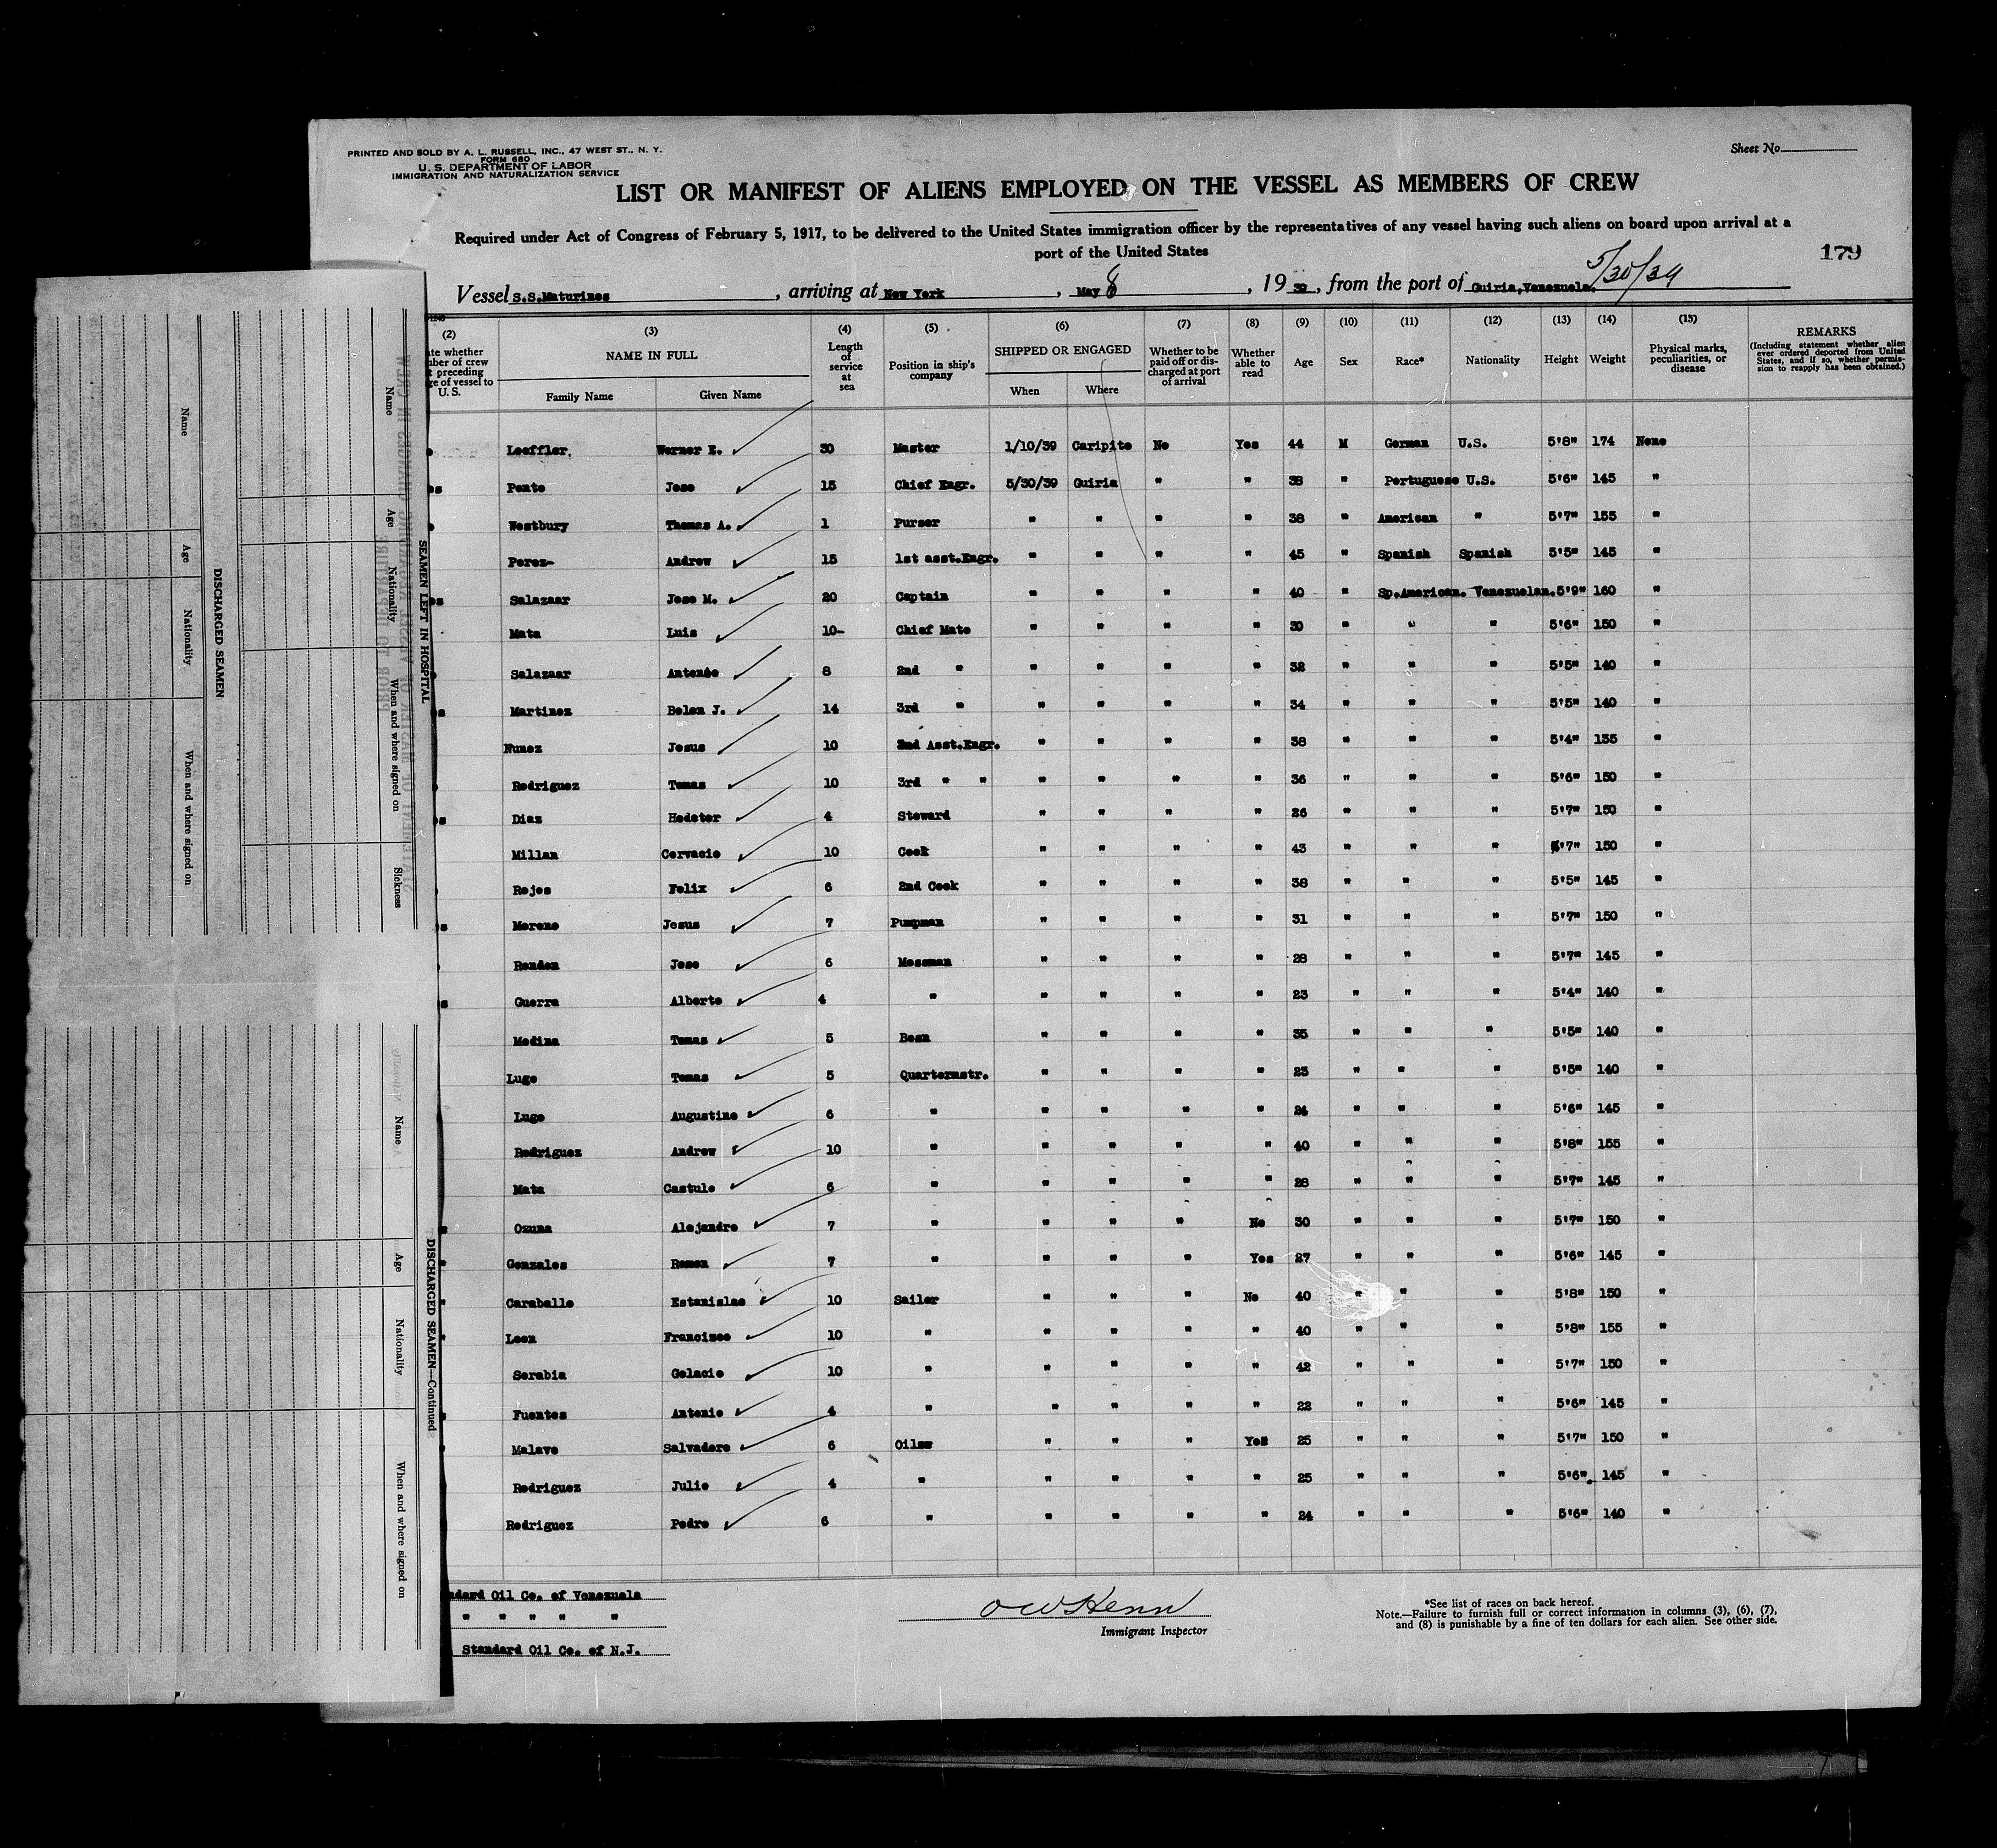 PRINTED AND SOLD BY A. L. RUSSELL, INC., 47 WEST ST., N. Y.
FORM 680
U. S. DEPARTMENT OF LABOR
IMMIGRATION AND NATURALIZATION SERVICE
Sheet No.
LIST OR MANIFEST OF ALIENS EMPLOYED ON THE VESSEL AS MEMBERS OF CREW
Required under Act of Congress of February 5, 1917, to be delivered to the United States immigration officer by the representatives of any vessel having such aliens on board upon arrival at a
port of the United States
179
5/30/39
Vessel S.S.Maturines, arriving at New York, May 8, 19 39, from the port of Guiria,Venezuela.
(2) (3) (4) (5) (6) (7) (8) (9) (10) (11) (12) (13) (14) (15)
NAME IN FULL Family Name Given Name Length of service at sea Position in ship's company SHIPPED OR ENGAGED When Where Whether to be paid off or discharged at port of arrival Whether able to read Age Sex Race* Nationality Height Weight Physical marks, peculiarities, or disease REMARKS
(Including statement whether alien ever ordered deported from United States, and if so, whether permission to reapply has been obtained.)
Loeffler, Werner E. 30 Master 1/10/39 Caripito No Yes 44 M German U.S. 5'8" 174 None
Pente Jose 15 Chief Engr. 5/30/39 Guiria " " 38 " Portuguese U.S. 5'6" 145 "
Westbury Thomas A. 1 Purser " " " " 38 " American " 5'7" 155 "
Perez- Andrew 15 1st asst.Engr. " " " " 45 " Spanish Spanish 5'5" 145 "
Salazaar Jose M. 20 Captain " " " " 40 " Sp.American. Venezuelan. 5'9" 160 "
Mata Luis 10- Chief Mate " " " " 30 " " " 5'6" 150 "
Salazaar Antonio 8 2nd " " " " " 32 " " " 5'5" 140 "
Martinez Belen J. 14 3rd " " " " " 34 " " " 5'5" 140 "
Nunez Jesus 10 2nd Asst.Engr. " " " " 38 " " " 5'4" 135 "
Rodriguez Tomas 10 3rd " " " " " " 36 " " " 5'6" 150 "
Diaz Hedoter 4 Steward " " " " 26 " " " 5'7" 150 "
Millan Cervacio 10 Cook " " " " 43 " " " 5'7" 150 "
Rojos Felix 6 2nd Cook " " " " 38 " " " 5'5" 145 "
Moreno Jesus 7 Pumpman " " " " 31 " " " 5'7" 150 "
Rondon Jose 6 Messman " " " " 28 " " " 5'7" 145 "
Guerra Alberto 4 " " " " " 23 " " " 5'4" 140 "
Medina Tomas 5 Bosn " " " " 35 " " " 5'5" 140 "
Lugo Tomas 5 Quartermstr. " " " " 23 " " " 5'5" 140 "
Lugo Augustino 6 " " " " " 24 " " " 5'6" 145 "
Rodriguez Andrew 10 " " " " " 40 " " " 5'8" 155 "
Mata Castulo 6 " " " " " 28 " " " 5'7" 145 "
Ozuna Alejandro 7 " " " " No 30 " " " 5'7" 150 "
Gonzales Ramon 7 " " " " Yes 27 " " " 5'6" 145 "
Caraballo Estanislao 10 Sailor " " " No 40 " " " 5'8" 150 "
Leon Francisco 10 " " " " " 40 " " " 5'8" 155 "
Serabia Gelacio 10 " " " " " 42 " " " 5'7" 150 "
Fuentes Antonio 4 " " " " " 22 " " " 5'6" 145 "
Malave Salvadore 6 Oiler " " " Yes 25 " " " 5'7" 150 "
Rodriguez Julio 4 " " " " " 25 " " " 5'6" 145 "
Rodriguez Pedro 6 " " " " " 24 " " " 5'6" 140 "
Standard Oil Co. of Venezuela
" " " " "
Standard Oil Co. of N.J.
O W Henn
Immigrant Inspector
*See list of races on back hereof.
Note.—Failure to furnish full or correct information in columns (3), (6), (7),
and (8) is punishable by a fine of ten dollars for each alien. See other side.
SEAMEN LEFT IN HOSPITAL
Name Age Nationality When and where signed on Sickness
DISCHARGED SEAMEN
Name Age Nationality When and where signed on
DISCHARGED SEAMEN—Continued
Name Age Nationality When and where signed on